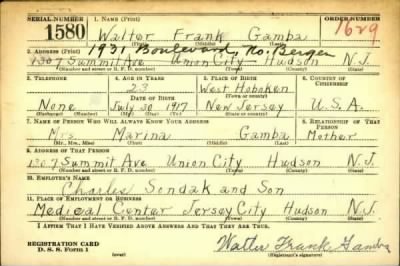 SERIAL NUMBER 1. NAME (Print) ORDER NUMBER (Print)
1580 Walter Frank Gamba 1629
(First) (Middle) (Last)
1931 Boulevard, No. Bergen
2. ADDRESS (Print)
1307 Summit Ave Union City Hudson N.J.
(Number and street or R. F. D. number) (Town) (County) (State)
3. TELEPHONE 4. AGE IN YEARS 5. PLACE OF BIRTH 6. COUNTRY OF CITIZENSHIP
23 West Hoboken
DATE OF BIRTH (Town or county)
None July 30 1917 New Jersey U.S.A.
(Exchange) (Number) (Mo.) (Day) (Yr.) (State or country)
7. NAME OF PERSON WHO WILL ALWAYS KNOW YOUR ADDRESS 8. RELATIONSHIP OF THAT PERSON
Mrs. Marina Gamba Mother
(Mr., Mrs., Miss) (First) (Middle) (Last)
9. ADDRESS OF THAT PERSON
1307 Summit Ave Union City Hudson N.J.
(Number and street or R. F. D. number) (Town) (County) (State)
10. EMPLOYER'S NAME
Charles Sondak and Son
11. PLACE OF EMPLOYMENT OR BUSINESS
Medical Center Jersey City Hudson N.J.
(Number and street or R. F. D. number) (Town) (County) (State)
I AFFIRM THAT I HAVE VERIFIED ABOVE ANSWERS AND THAT THEY ARE TRUE.
REGISTRATION CARD
D. S. S. Form 1 (over) Walter Frank Gamba
(Registrant's signature)